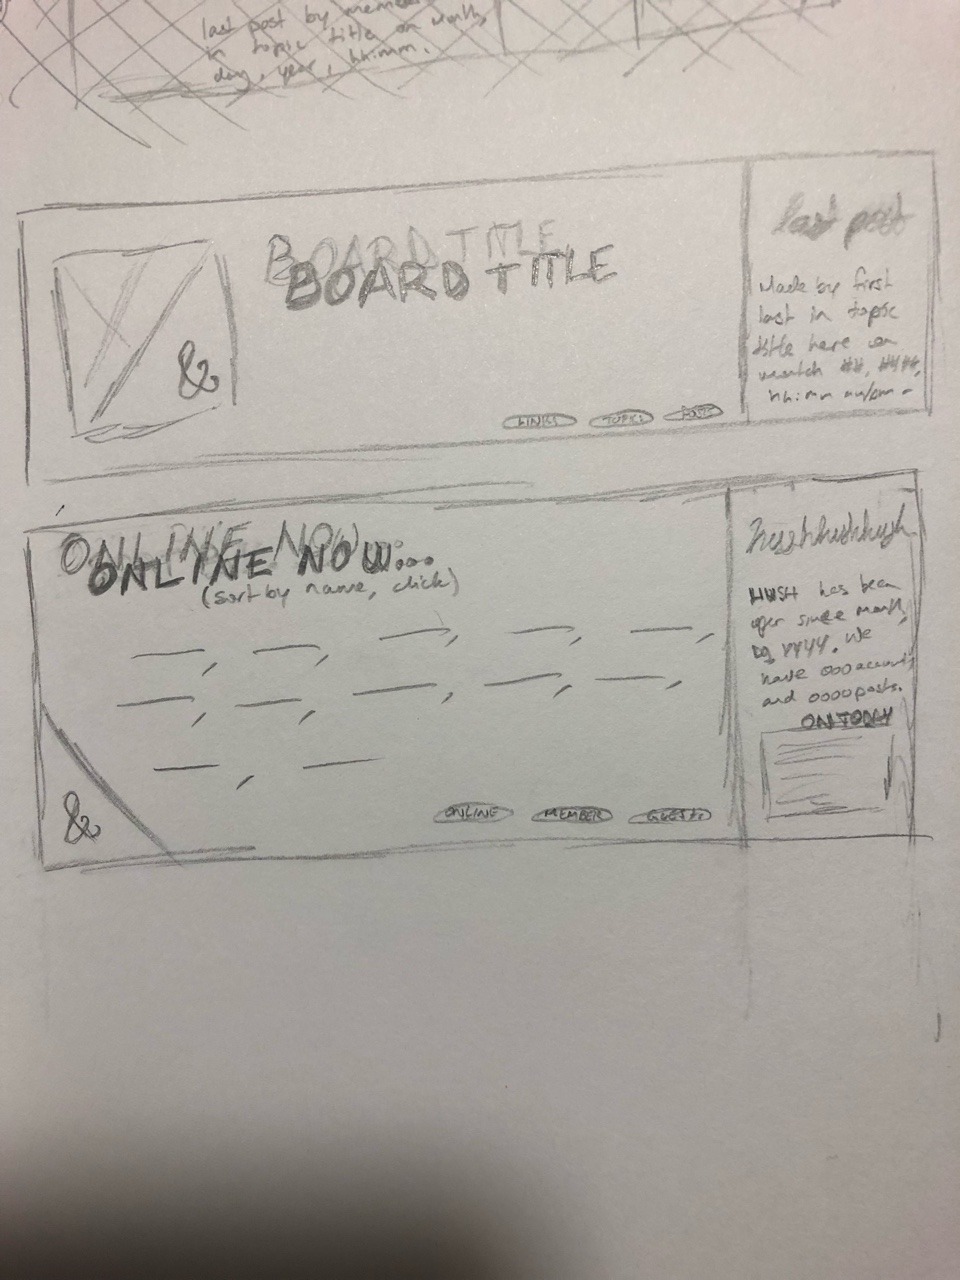 last post by member
in topic title on month,
day, year, hh:mm.
BOARD TITLE
BOARD TITLE
&
LINKS
TOPICS
last post
Made by first
last in topic
title here on
month ##, ####,
hh:mm am/pm
ONLINE NOW...
ONLINE NOW...
(sort by name, click)
&
ONLINE
MEMBER
GUESTS
hushhushhush
HUSH has been
open since month,
DD, YYYY. We
have 000 accounts
and 0000 posts.